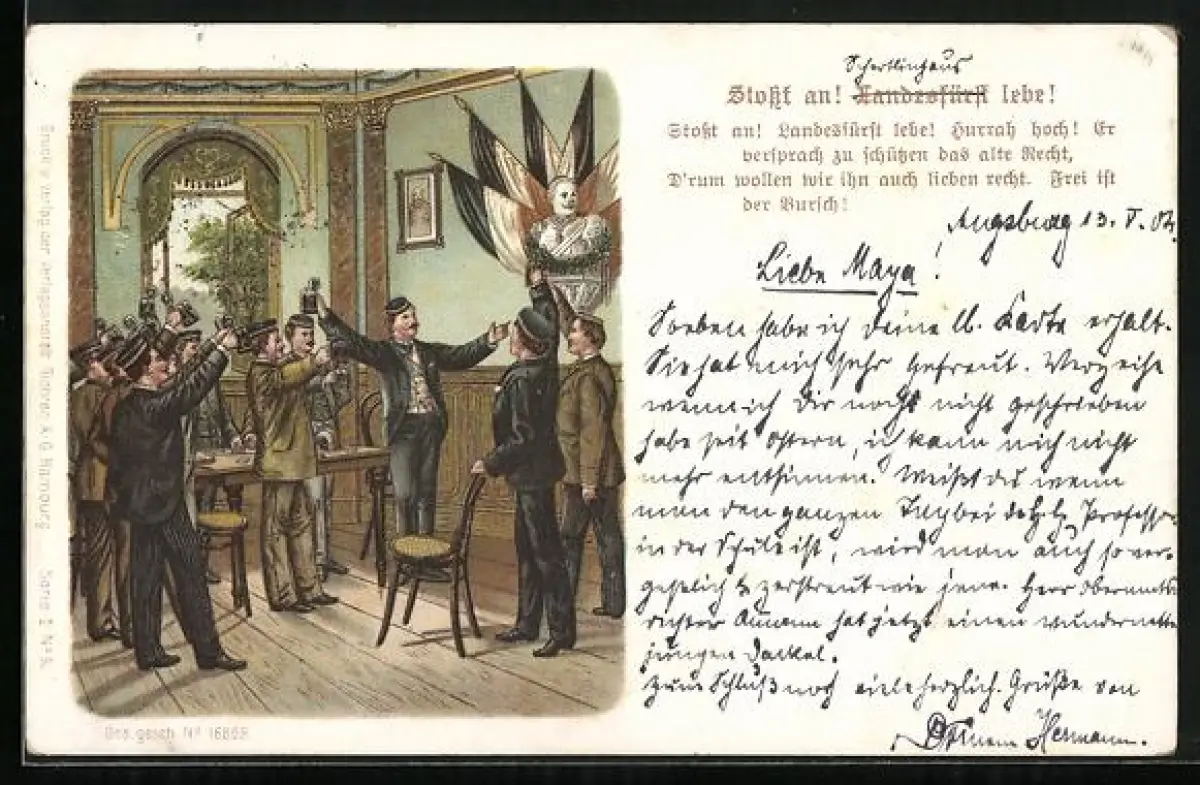 Schertlinhaus
Stoßt an! Landesfürst lebe!
Stoßt an! Landesfürst lebe! Hurrah hoch! Er
versprach zu schützen das alte Recht,
D'rum wollen wir ihn auch lieben recht. Frei ist
der Bursch!
Augsburg 13. V. 02.
Liebe Maya!
Soeben habe ich deine lb. Karte erhalt.
Sie hat mich sehr gefreut. Verzeihe
wenn ich Dir noch nicht geschrieben
habe seit Ostern, ich kann mich nicht
mehr entsinnen. Weißt du wenn
man den ganzen Tag bei Professor
in der Schule ist, wird man auch so ver-
geßlich & zerstreut wie jene. Herr Oberamts-
richter Ammann hat jetzt einen wundernetten
jungen Dackel.
Zum Schluß noch viele herzlich. Grüße von
Deinem Hermann.
Druck u. Verlag der Verlagsanstalt A.G. Hamburg Serie I No
Ges. gesch. No 16869